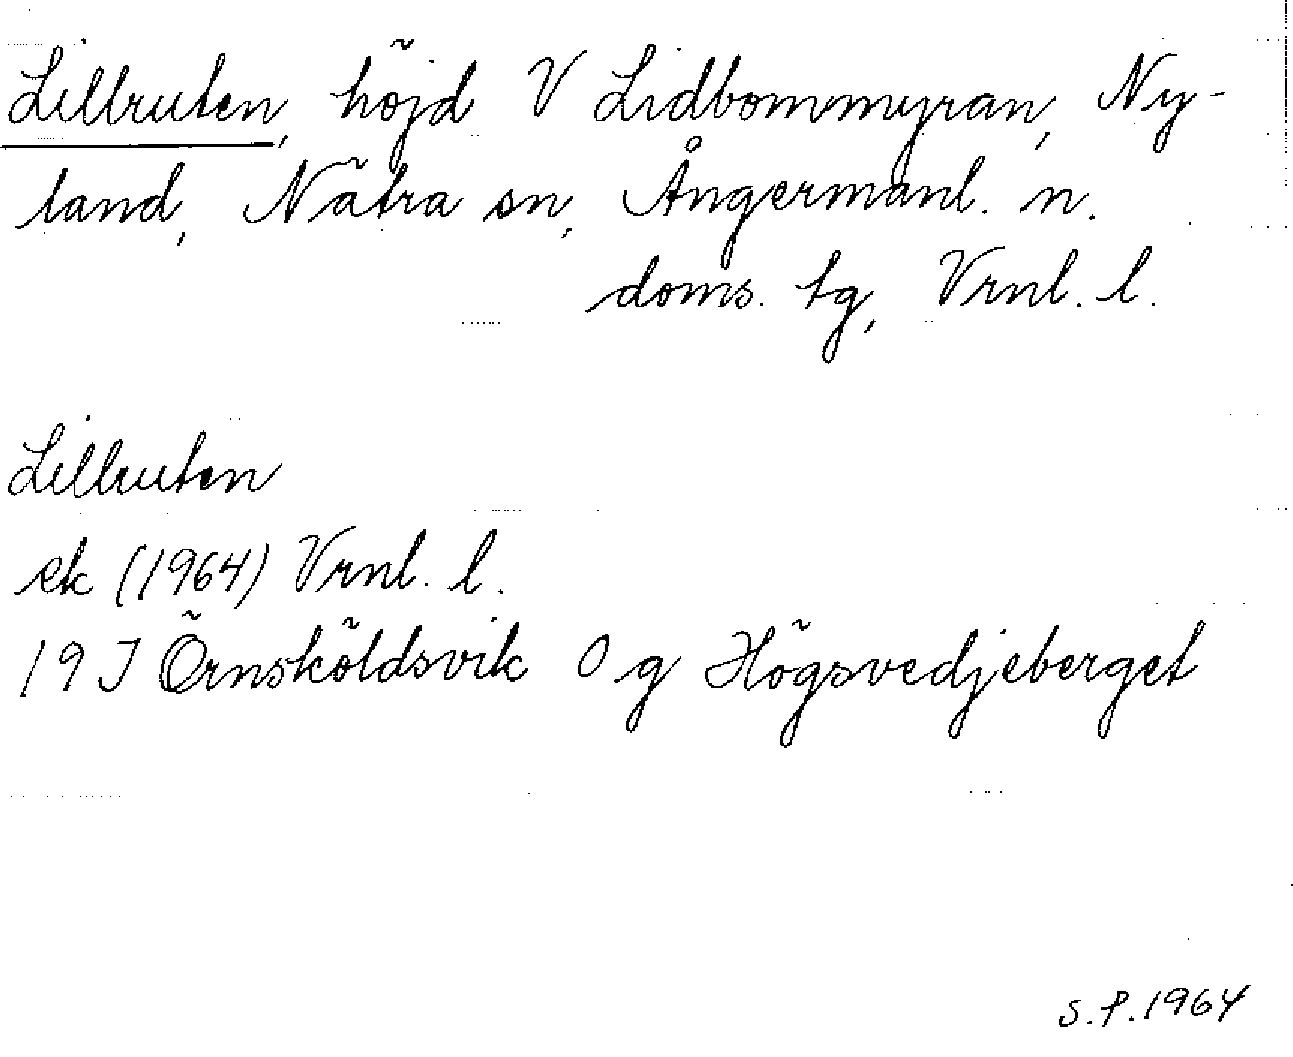 Lillruten, höjd V Lidbommyran, Ny-
land, Nätra sn, Ångermanl. n.
doms. tg, Vrnl. l.
Lillruten
ek (1964) Vrnl. l.
19 J Örnsköldsvik Og Högsvedjeberget
S.P. 1964